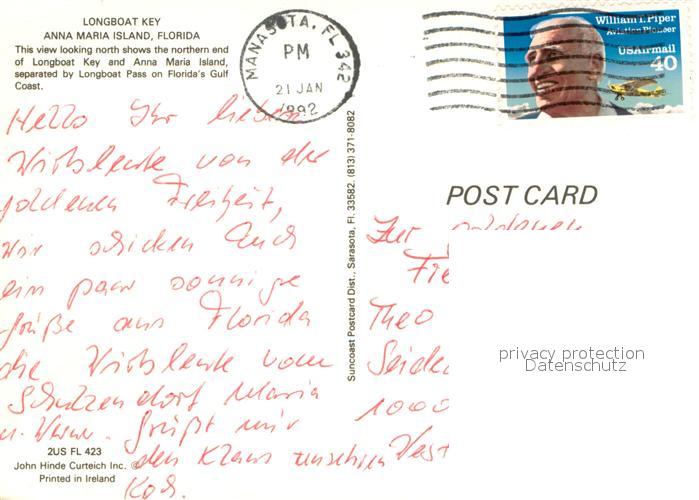 LONGBOAT KEY
ANNA MARIA ISLAND, FLORIDA
This view looking north shows the northern end
of Longboat Key and Anna Maria Island,
separated by Longboat Pass on Florida's Gulf
Coast.
Hello Ihr lieben
Wirtsleute von der
goldenen Freiheit,
Wir schicken Euch
ein paar sonnige
Grüße aus Florida
die Wirtsleute vom
Schützendorf Maria
u. Werner. Grüßt mir
den Klaus
Koch.
2US FL 423
John Hinde Curteich Inc. ©
Printed in Ireland
Suncoast Postcard Dist., Sarasota, Fl. 33582. (813) 371-8082
MANASOTA, FL 342
PM
21 JAN
1992
William T. Piper
Aviation Pioneer
USAirmail
40
POST CARD
Zur goldenen
Fre
Theo
Seide
1000
West
privacy protection
Datenschutz